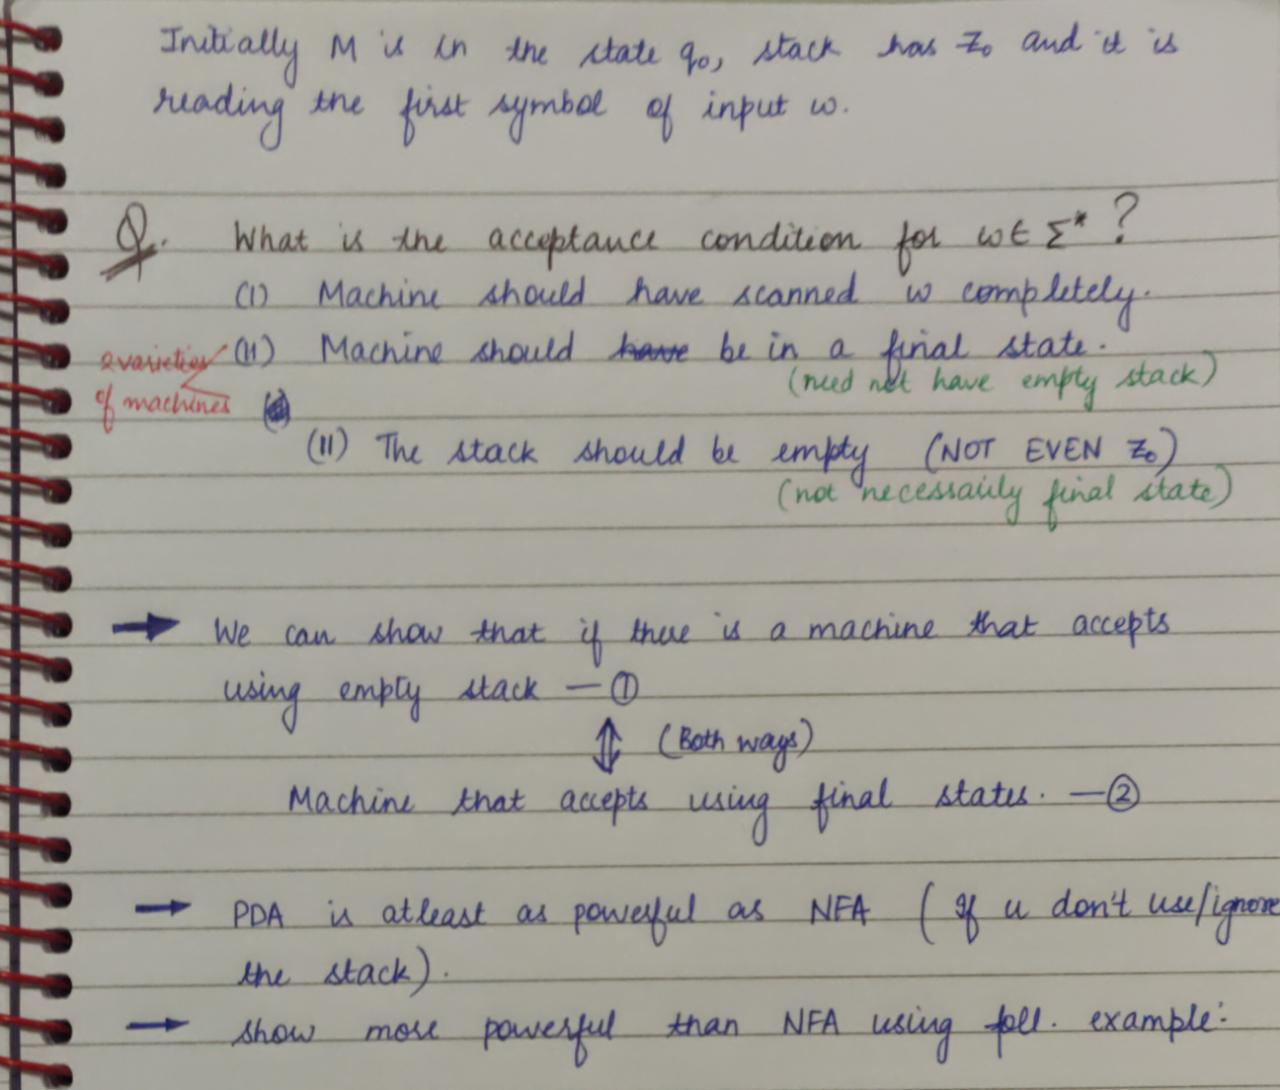 Initially M is in the state q₀, stack has Z₀ and it is
reading the first symbol of input w.
Q. What is the acceptance condition for w∈ Σ* ?
(I) Machine should have scanned w completely.
2 varieties (II) Machine should have be in a final state.
(need not have empty stack)
of machines
(II) The stack should be empty (NOT EVEN Z₀)
(not necessarily final state)
→ We can show that if there is a machine that accepts
using empty stack — ①
⇕ (Both ways)
Machine that accepts using final states. — ②
→ PDA is atleast as powerful as NFA ( If u don't use/ignore
the stack).
→ show more powerful than NFA using foll. example: